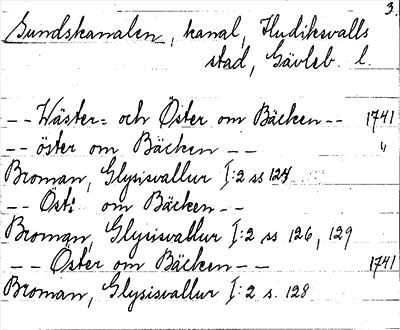 3.
Sundskanalen, kanal, Hudiksvalls
stad, Gävleb. l.
-- Wäster= och Öster om Bäcken -- 1741
-- öster om Bäcken -- "
Broman, Glysisvallur I:2 ss 127
-- Öst: om Bäcken --
Broman, Glysisvallur I:2 ss 126, 129
-- Öster om Bäcken -- 1741
Broman, Glysisvallur I:2 s. 128